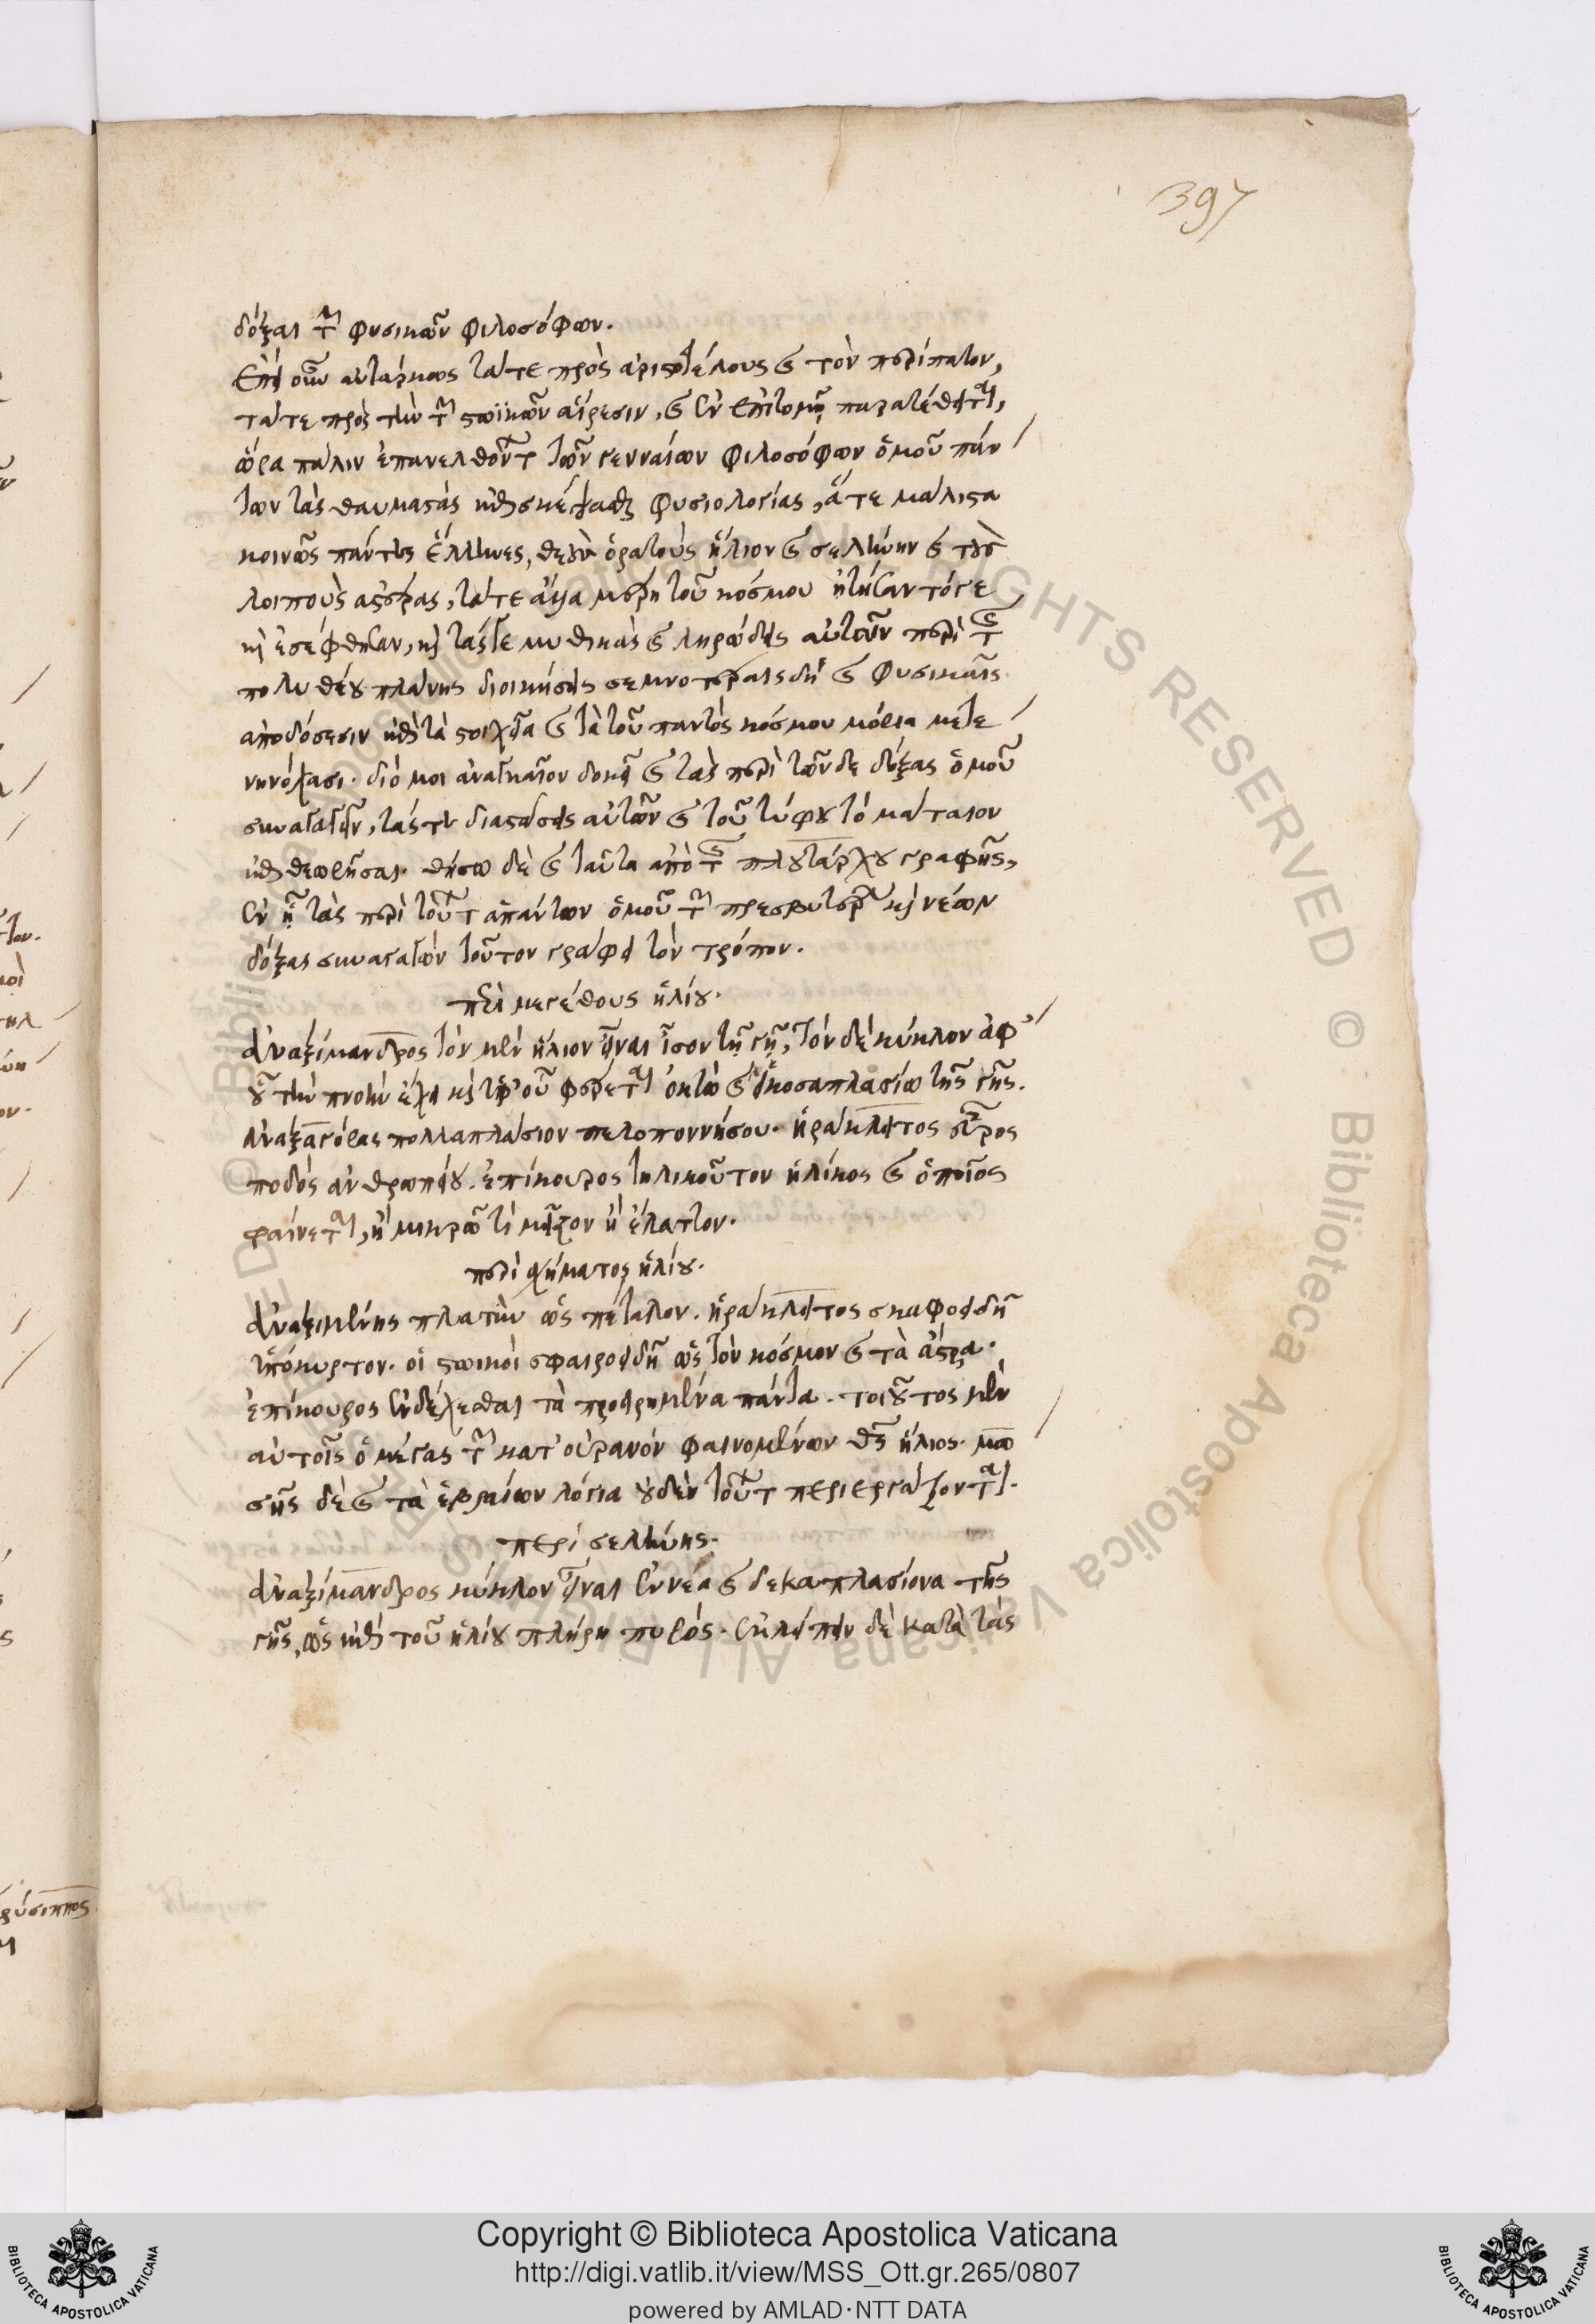 397
δόξαι τῶν φυσικῶν φιλοσόφων.
Ἐπεὶ οὖν αὐτάρκως τά τε πρὸς ἀριστοτέλους καὶ τὸν περίπατον,
τά τε πρὸς τὴν τῶν στωϊκῶν αἵρεσιν, καὶ ἐν ἐπιτομῇ παρατέθειται,
ὥρα πάλιν ἐπανελθόντας τῶν γενναίων φιλοσόφων ὁμοῦ πάν
των τὰς θαυμαστὰς κατασκέψασθαι φυσιολογίας, ἅτε μάλιστα
κοινῶς πάντες ἕλληνες, θεοὺς ὁρατοὺς ἥλιον καὶ σελήνην καὶ τοὺς
λοιποὺς ἀστέρας, τά τε ἄλλα μέρη τοῦ κόσμου ἡγήσαντό γε
καὶ ἐσέφθησαν, καὶ τάς γε μυθικὰς καὶ ληρώδεις αὐτῶν περὶ τῆς
πολυθέου πλάνης διοικήσεις σεμνοτέραις δὴ καὶ φυσικαῖς
ἀποδόσεσιν κατὰ τὰ στοιχεῖα καὶ τὰ τοῦ παντὸς κόσμου μόρια μετε
νηνόχασι. διό μοι ἀναγκαῖον δοκεῖ καὶ τὰς περὶ τῶνδε δόξας ὁμοῦ
συναγαγεῖν, τάς τε διαστάσεις αὐτῶν καὶ τοῦ τύφου τὸ μάταιον
καταθεωρῆσαι. θήσω δὲ καὶ ταῦτα ἀπὸ τῆς πλουτάρχου γραφῆς,
ἐν ᾗ τὰς περὶ τούτων ἁπάντων ὁμοῦ τῶν πρεσβυτέρων καὶ νέων
δόξας συναγαγὼν τοῦτον γράφει τὸν τρόπον.
περὶ μεγέθους ἡλίου.
Ἀναξίμανδρος τὸν μὲν ἥλιον εἶναι ἴσον τῇ γῇ, τὸν δὲ κύκλον ἀφ'
οὗ τὴν πνοὴν ἔχει καὶ ὑφ' οὗ φέρεται ὀκτὼ καὶ εἰκοσαπλασίω τῆς γῆς.
Ἀναξαγόρας πολλαπλάσιον πελοποννήσου. ἡράκλειτος εὖρος
ποδὸς ἀνθρωπείου. ἐπίκουρος τηλικοῦτον ἡλίκος καὶ ὁποῖος
φαίνεται, ἢ μικρῷ τι μεῖζον ἢ ἔλαττον.
περὶ σχήματος ἡλίου.
Ἀναξιμένης πλατὺν ὡς πέταλον. ἡράκλειτος σκαφοειδῆ
ὑπόκυρτον. οἱ στωικοὶ σφαιροειδῆ ὡς τὸν κόσμον καὶ τὰ ἄστρα.
ἐπίκουρος ἐνδέχεσθαι τὰ προειρημένα πάντα. τοιοῦτος μὲν
αὐτοῖς ὁ μέγας τῶν κατ' οὐρανὸν φαινομένων θεὸς ἥλιος. μωϋ
σῆς δὲ καὶ τὰ ἑβραίων λόγια οὐδὲν τούτων περιεργάζονται.
περὶ σελήνης.
Ἀναξίμανδρος κύκλον εἶναι ἐννέα καὶ δεκαπλασίονα τῆς
γῆς, ὡς κατὰ τοῦ ἡλίου πλήρη πυρός. ἐκλείπειν δὲ κατὰ τὰς
Copyright © Biblioteca Apostolica Vaticana
http://digi.vatlib.it/view/MSS_Ott.gr.265/0807
powered by AMLAD·NTT DATA